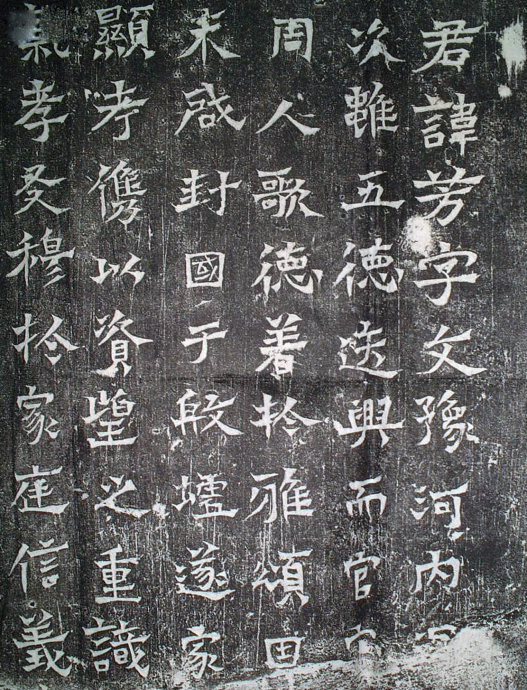 君諱芳字文豫河内
次雖五德迭興而官
周人歌德着於雅頌田
末咸封國于殷墟遂家
顯考儁以資望之重識
氣孝友穆於家庭信義